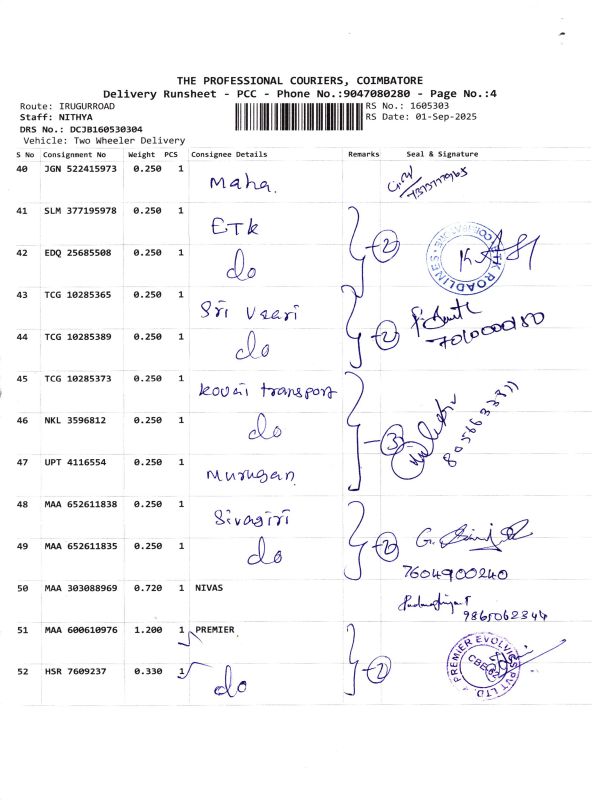 THE PROFESSIONAL COURIERS, COIMBATORE
Delivery Runsheet - PCC - Phone No.:9047080280 - Page No.:4
Route: IRUGURROAD RS No.: 1605303
Staff: NITHYA RS Date: 01-Sep-2025
DRS No.: DCJB160530304
Vehicle: Two Wheeler Delivery
S No Consignment No Weight PCS Consignee Details Remarks Seal & Signature
40 JGN 522415973 0.250 1 Maha.
41 SLM 377195978 0.250 1 ETK
42 EDQ 25685508 0.250 1 do 2
ETK ROADLINES
43 TCG 10285365 0.250 1 Sri Vaari
44 TCG 10285389 0.250 1 do 2
45 TCG 10285373 0.250 1 kovai transport
46 NKL 3596812 0.250 1 do 3
47 UPT 4116554 0.250 1 Murugan
48 MAA 652611838 0.250 1 Sivagiri
49 MAA 652611835 0.250 1 do 2
7604900240
50 MAA 303088969 0.720 1 NIVAS
9865062344
51 MAA 600610976 1.200 1 PREMIER
52 HSR 7609237 0.330 1 do 2
PREMIER EVOLVICS PVT LTD